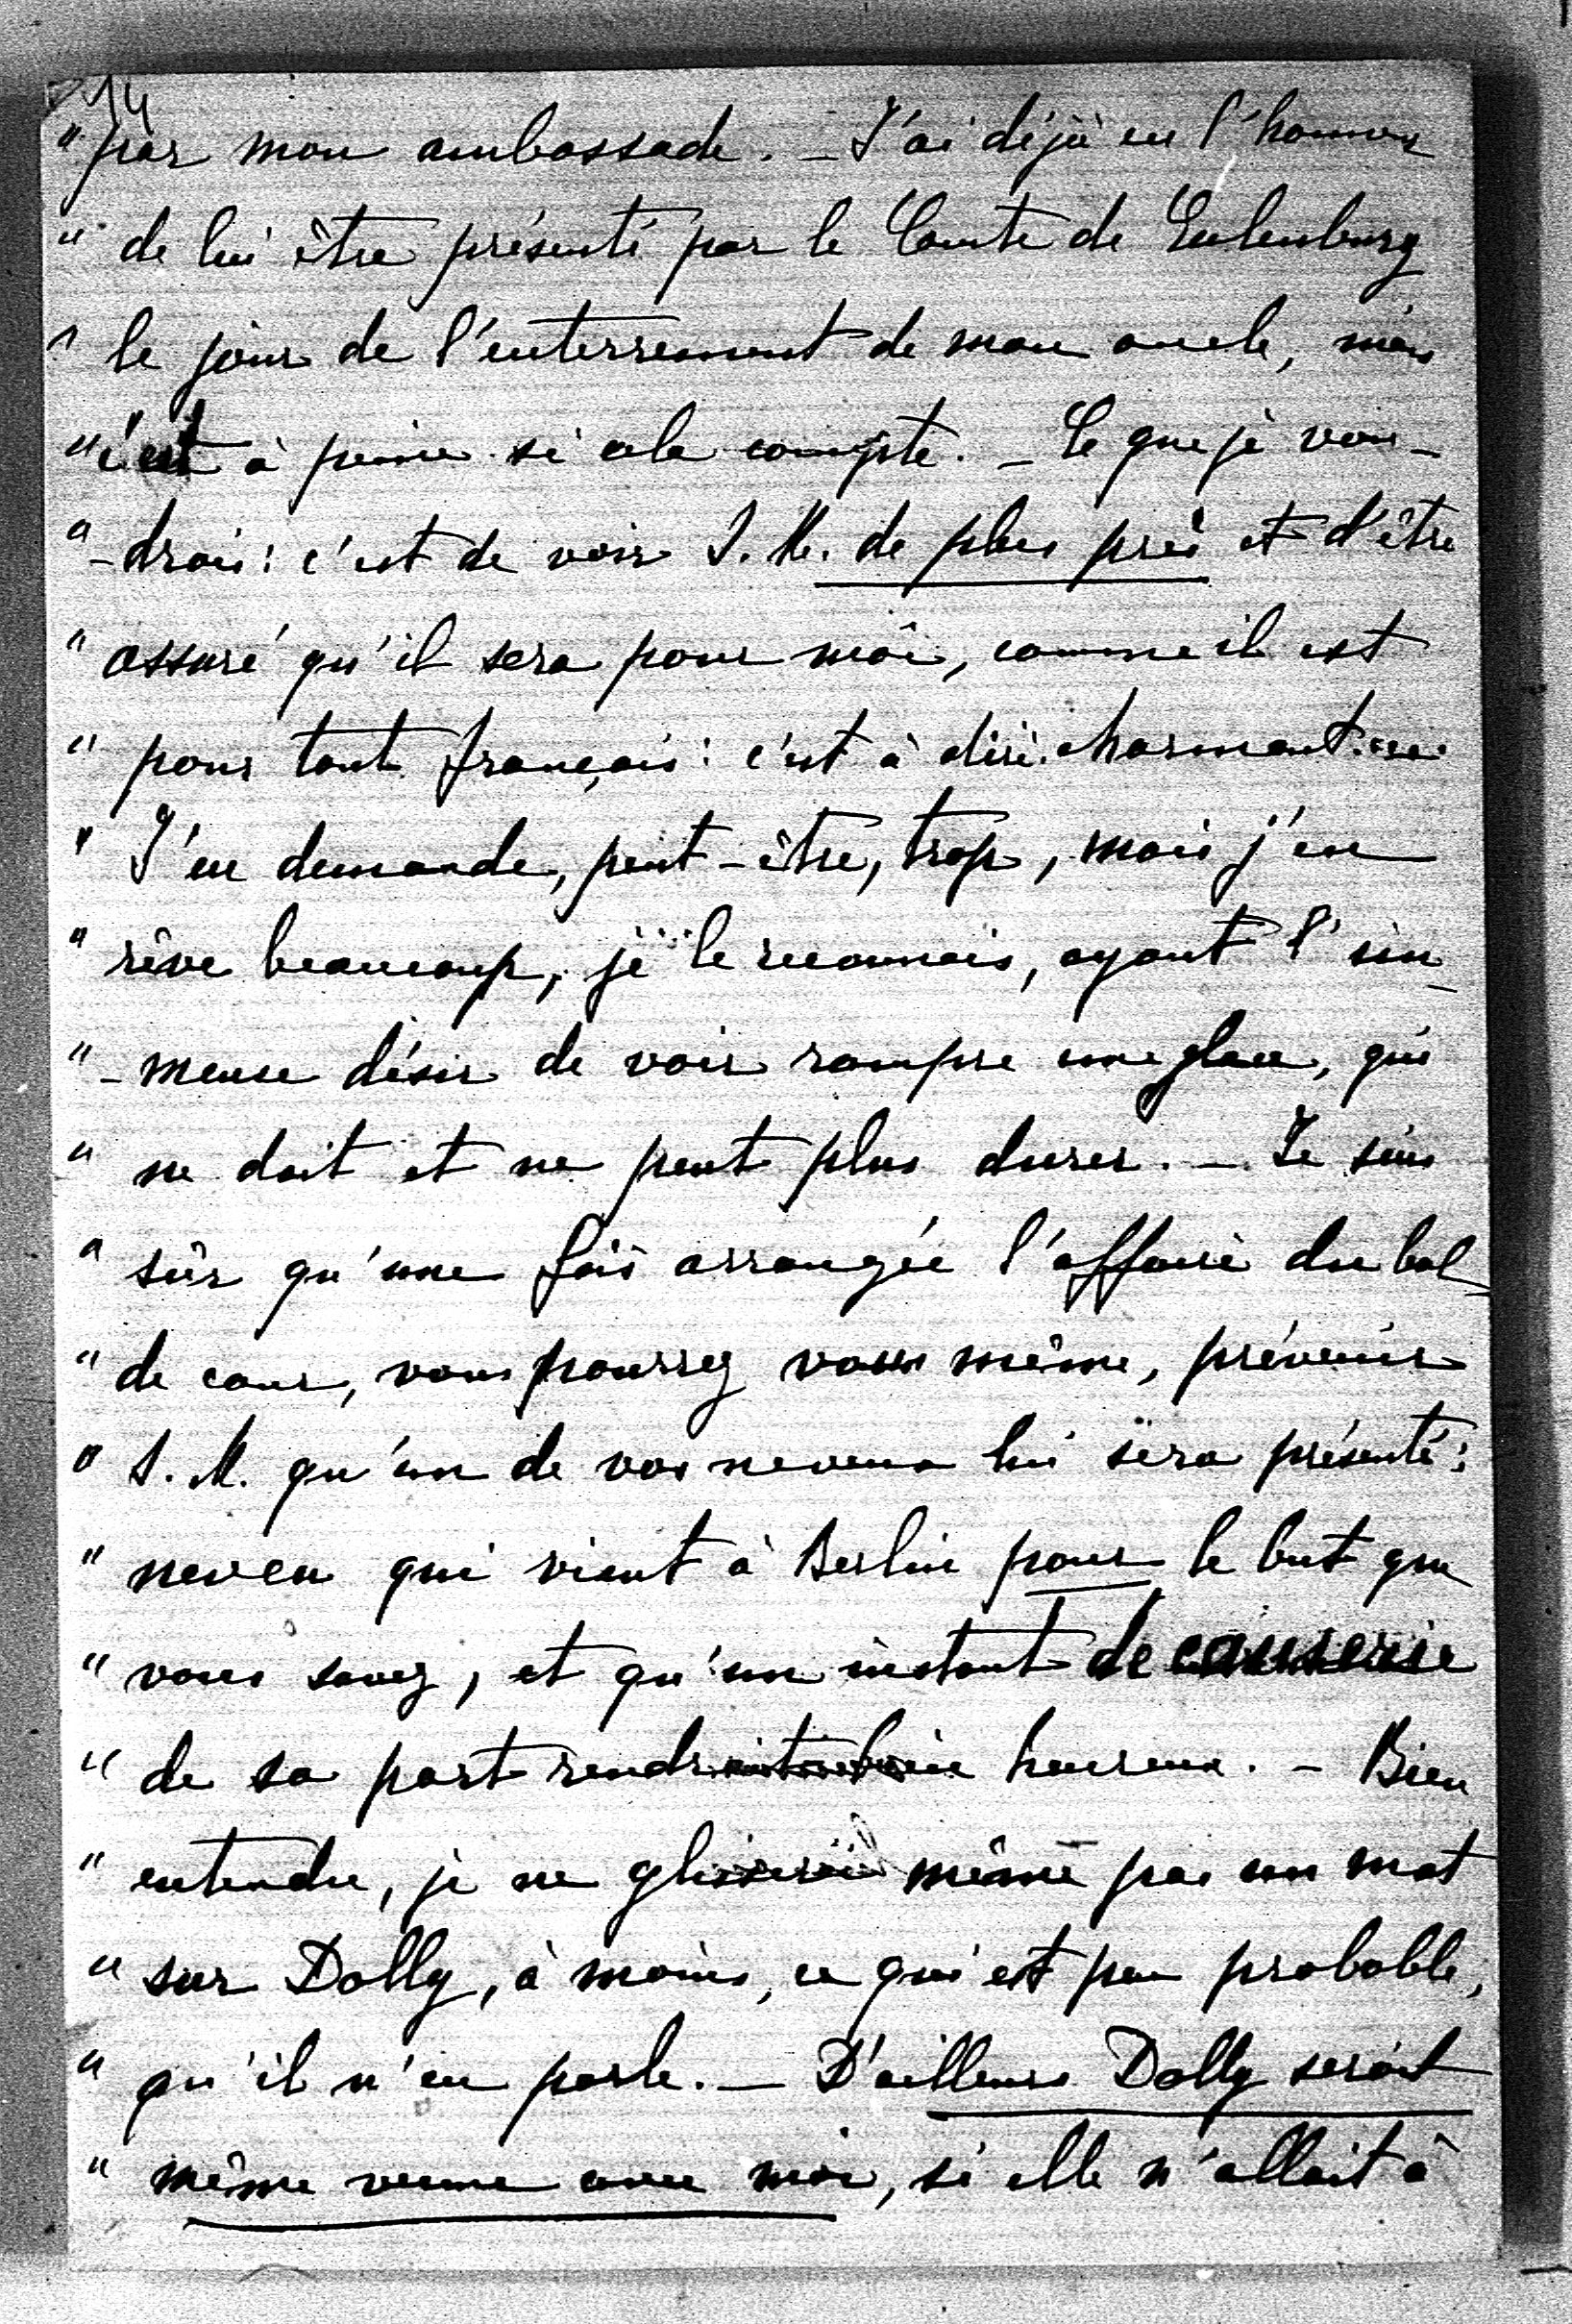 14
" par mon ambassade. _ J'ai déjà eu l'honneur
" de lui être présenté par le Comte de Eulenburg
" le jour de l'enterrement de mon oncle, mais
" c'est à peine si cela compte. _ Ce que je vou-
" -drais: c'est de voir S. M. de plus près et d'être
" assuré qu'il sera pour moi, comme il est
" pour tout français: c'est à dire: charmant.
" J'en demande, peut-être, trop, mais j'en
" rêve beaucoup, je le reconnais, ayant l'im-
" -mense désir de voir rompre une glace, qui
" ne doit et ne peut plus durer. _ Je suis
" sûr qu'une fois arrangée l'affaire du bal
" de cour, vous pourrez vous même, prévenir
" S. M. qu'un de vos neveux lui sera présenté:
" neveu qui vient à Berlin pour le but que
" vous savez, et qu'un instant de causerie
" de sa part rendrait bien heureux. - Bien
" entendu, je ne glisserai même pas un mot
" sur Dolly, à moins, ce qui est peu probable,
" qu'il n'en parle. _ D'ailleurs Dolly serait
" même venue avec moi, si elle n'allait à